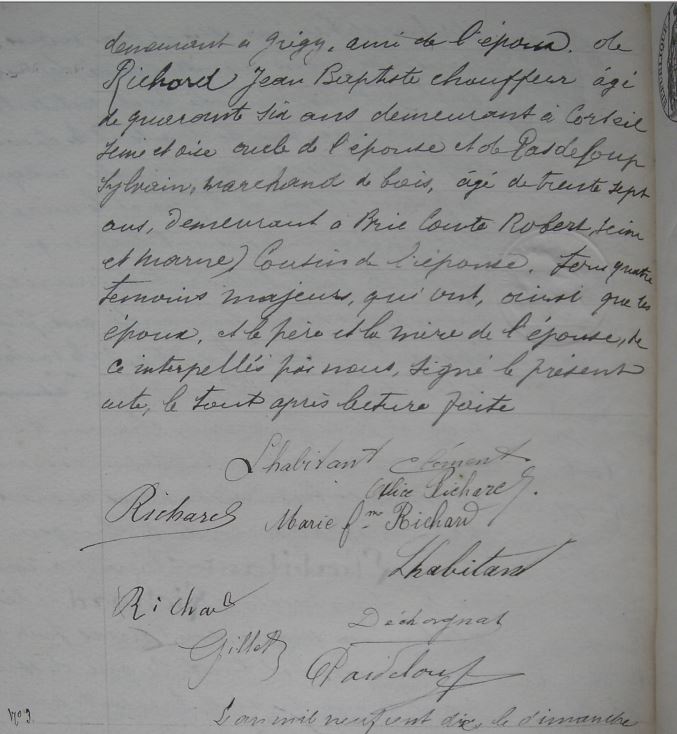 demeurant à Grégy, ami de l'époux. de
Richard Jean Baptiste chauffeur âgé
de quarante six ans demeurant à Corbeil
Seine et oise oncle de l'épouse et de Pasdeloup
Sylvain, marchand de bois, âgé de trente sept
ans, demeurant à Brie Comte Robert, Seine
et marne) Cousin de l'épouse. Tous quatre
témoins majeurs, qui ont, ainsi que les
époux, et le père et la mère de l'épouse, de
ce interpellés par nous, signé le présent
acte, le tout après lecture faite
Lhabitant Clément
Alice Richard.
Richard Marie fme Richard
Lhabitant
Richard
Déchorgnat
Gillet
Pasdeloup
L'an mil neuf cent dix, le dimanche
RÉPUBLIQUE